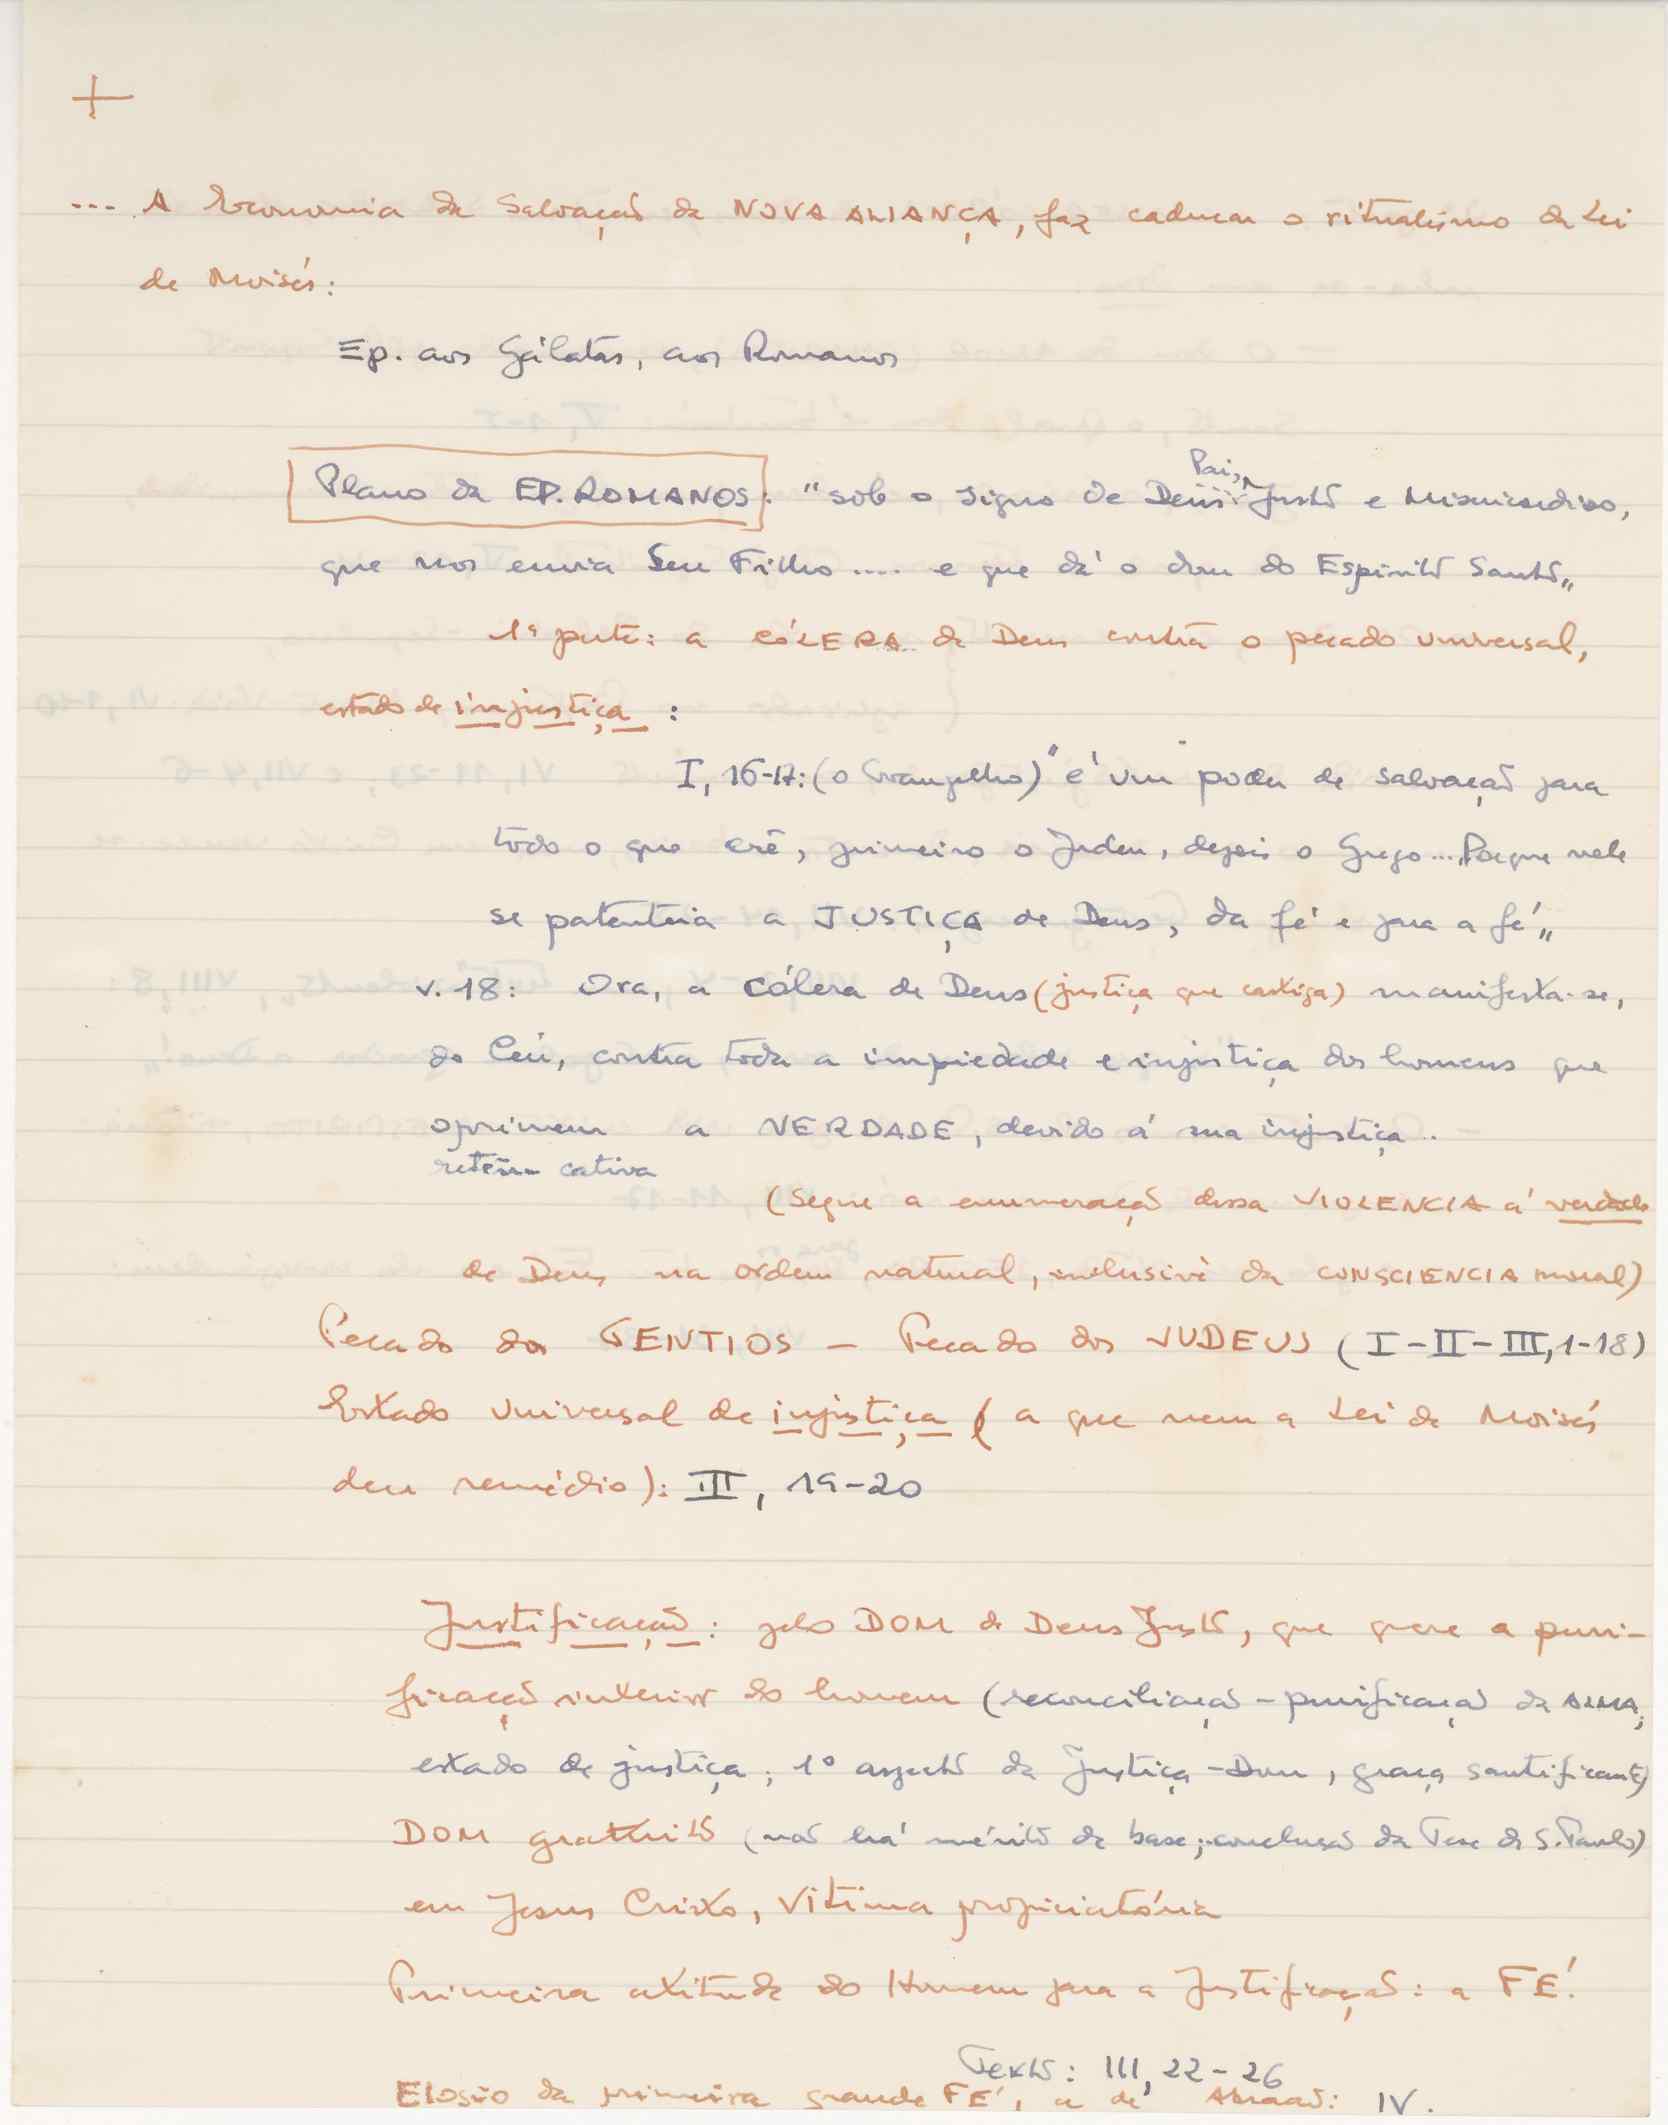 ... A Economia da Salvação da NOVA ALIANÇA, faz caducar o ritualismo da Lei
de Moisés:
Ep. aos Gálatas, aos Romanos
Plano da EP. ROMANOS: "sob o signo de Deus Pai, Justo e Misericordioso,
que nos envia Seu Filho .... e que dá o dom do Espírito Santo„
1ª parte: a CÓLERA de Deus contra o pecado universal,
estado de injustiça :
I, 16-17: (o Evangelho) "é um poder de salvação para
todo o que crê, primeiro o Judeu, depois o Grego... Porque nele
se patenteia a JUSTIÇA de Deus, da fé e para a fé„
v. 18: Ora, a cólera de Deus (justiça que castiga) manifesta-se,
do Céu, contra toda a impiedade e injustiça dos homens que
oprimem a VERDADE, devido á sua injustiça..
retêm cativa
(segue a enumeração dessa VIOLENCIA á verdade
de Deus na ordem natural, inclusivé da CONSCIENCIA moral)
Pecado dos GENTIOS - Pecado dos JUDEUS (I-II-III, 1-18)
Estado universal de injustiça (a que nem a Lei de Moisés
deu remédio): III, 19-20
Justificação: pelo DOM de Deus Justo, que quere a puri-
ficação interior do homem (reconciliação - purificação da ALMA;
estado de justiça; 1º aspecto da Justiça-Dom, graça santificante)
DOM gratuito (não há mérito de base; conclusão da Tese de S. Paulo)
em Jesus Cristo, Vitima propiciatória
Primeira atitude do Homem para a Justificação: a FÉ!
Texto: III, 22-26
Elogio da primeira grande FÉ, a de Abraão: IV.